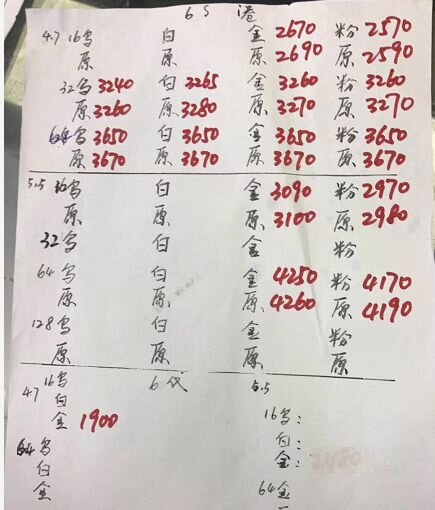 6S 港
4.7 16乌 白 金 2670 粉 2570
原 原 原 2690 原 2590
32乌 3240 白 3265 金 3260 粉 3260
原 3260 原 3280 原 3270 原 3270
64乌 3650 白 3650 金 3650 粉 3650
原 3670 原 3670 原 3670 原 3670
5.5 16乌 白 金 3090 粉 2970
原 原 原 3100 原 2980
32乌 白 金 粉
64乌 白 金 4250 粉 4170
原 原 原 4260 原 4190
128乌 白 金 粉
原 原 原 原
6代
4.7 16乌
白
金 1900
64乌
白
金
5.5
16乌:
白:
金:
64金